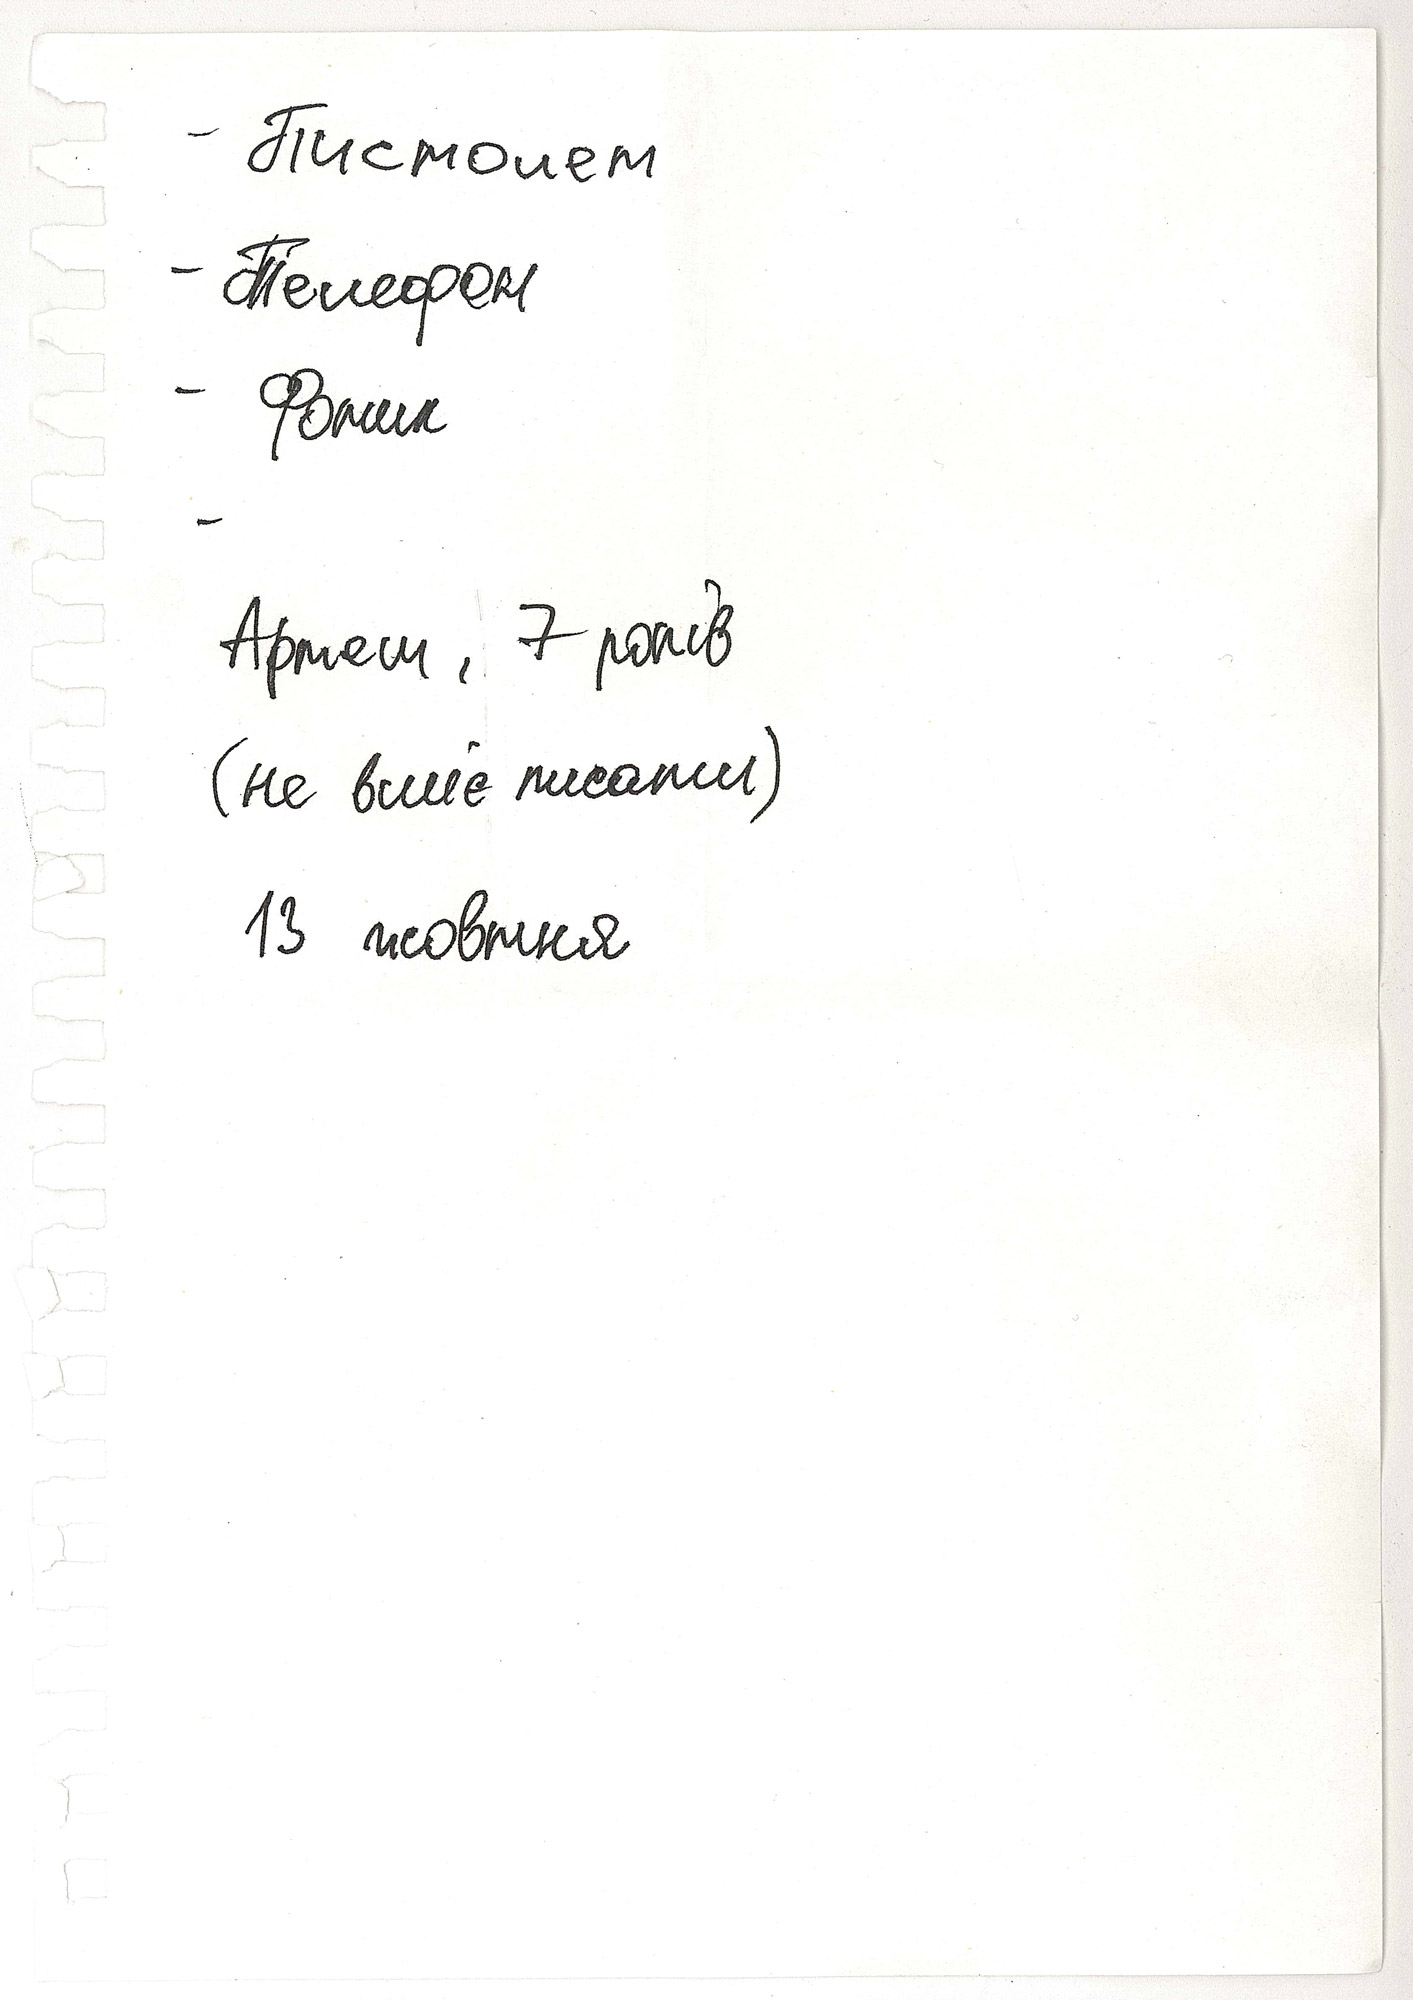 - Пистолет
- Телефон
- Фотик
-
Артем, 7 років
(не вміє писати)
13 жовтня